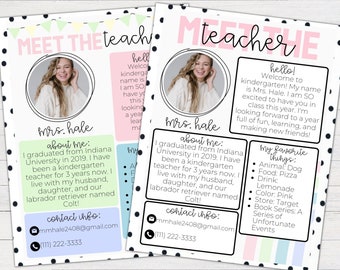 MEET THE teacher
hello!
Welcome to
kindergarten!
mrs. hale
about me:
I graduated from Indiana
University in 2019. I have
been a kindergarten
teacher for 3 years now. I
live with my husband,
daughter, and our
labrador retriever named
Colt!
contact info:
mmhale2408@gmail
(111) 222-3333
MEET THE
teacher
hello!
Welcome to
kindergarten! My name
is Mrs. Hale. I am SO
excited to have you in
class this year. I'm
looking forward to a year
full of fun, learning, and
making new friends!
mrs. hale
about me:
I graduated from Indiana
University in 2019. I have
been a kindergarten
teacher for 3 years now. I
live with my husband,
daughter, and our
labrador retriever named
Colt!
my favorite
things:
Animal: Dog
Food: Pizza
Drink:
Lemonade
Color: Pink
Store: Target
Book Series: A
Series of
Unfortunate
Events
contact info:
mmhale2408@gmail.com
(111) 222-3333